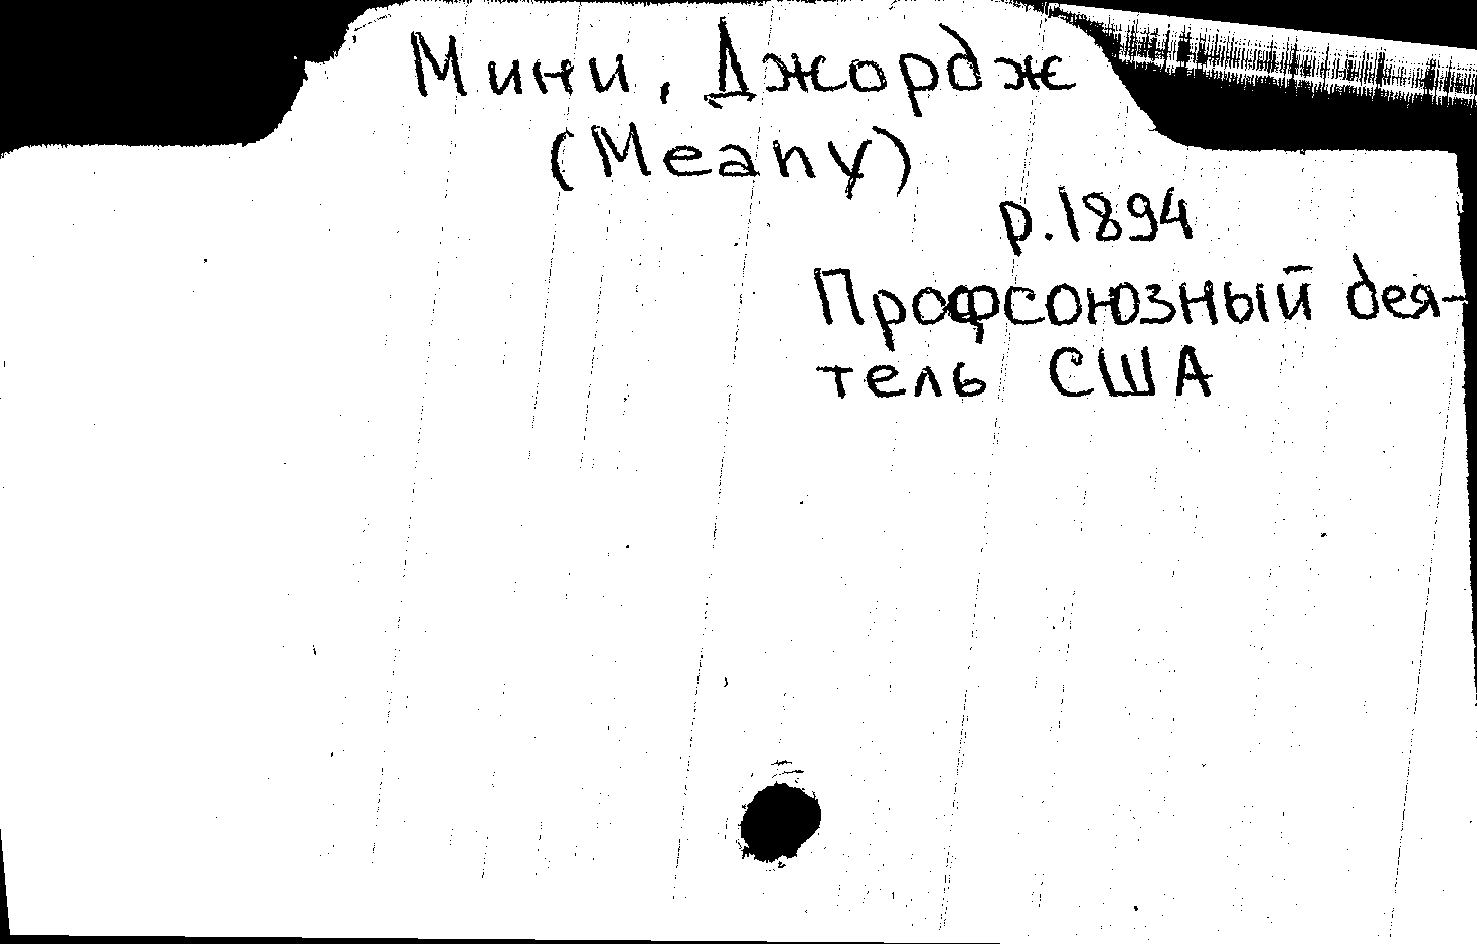 Мини, Джордж
(Meany)
р.1894
Профсоюзный дея-
тель США